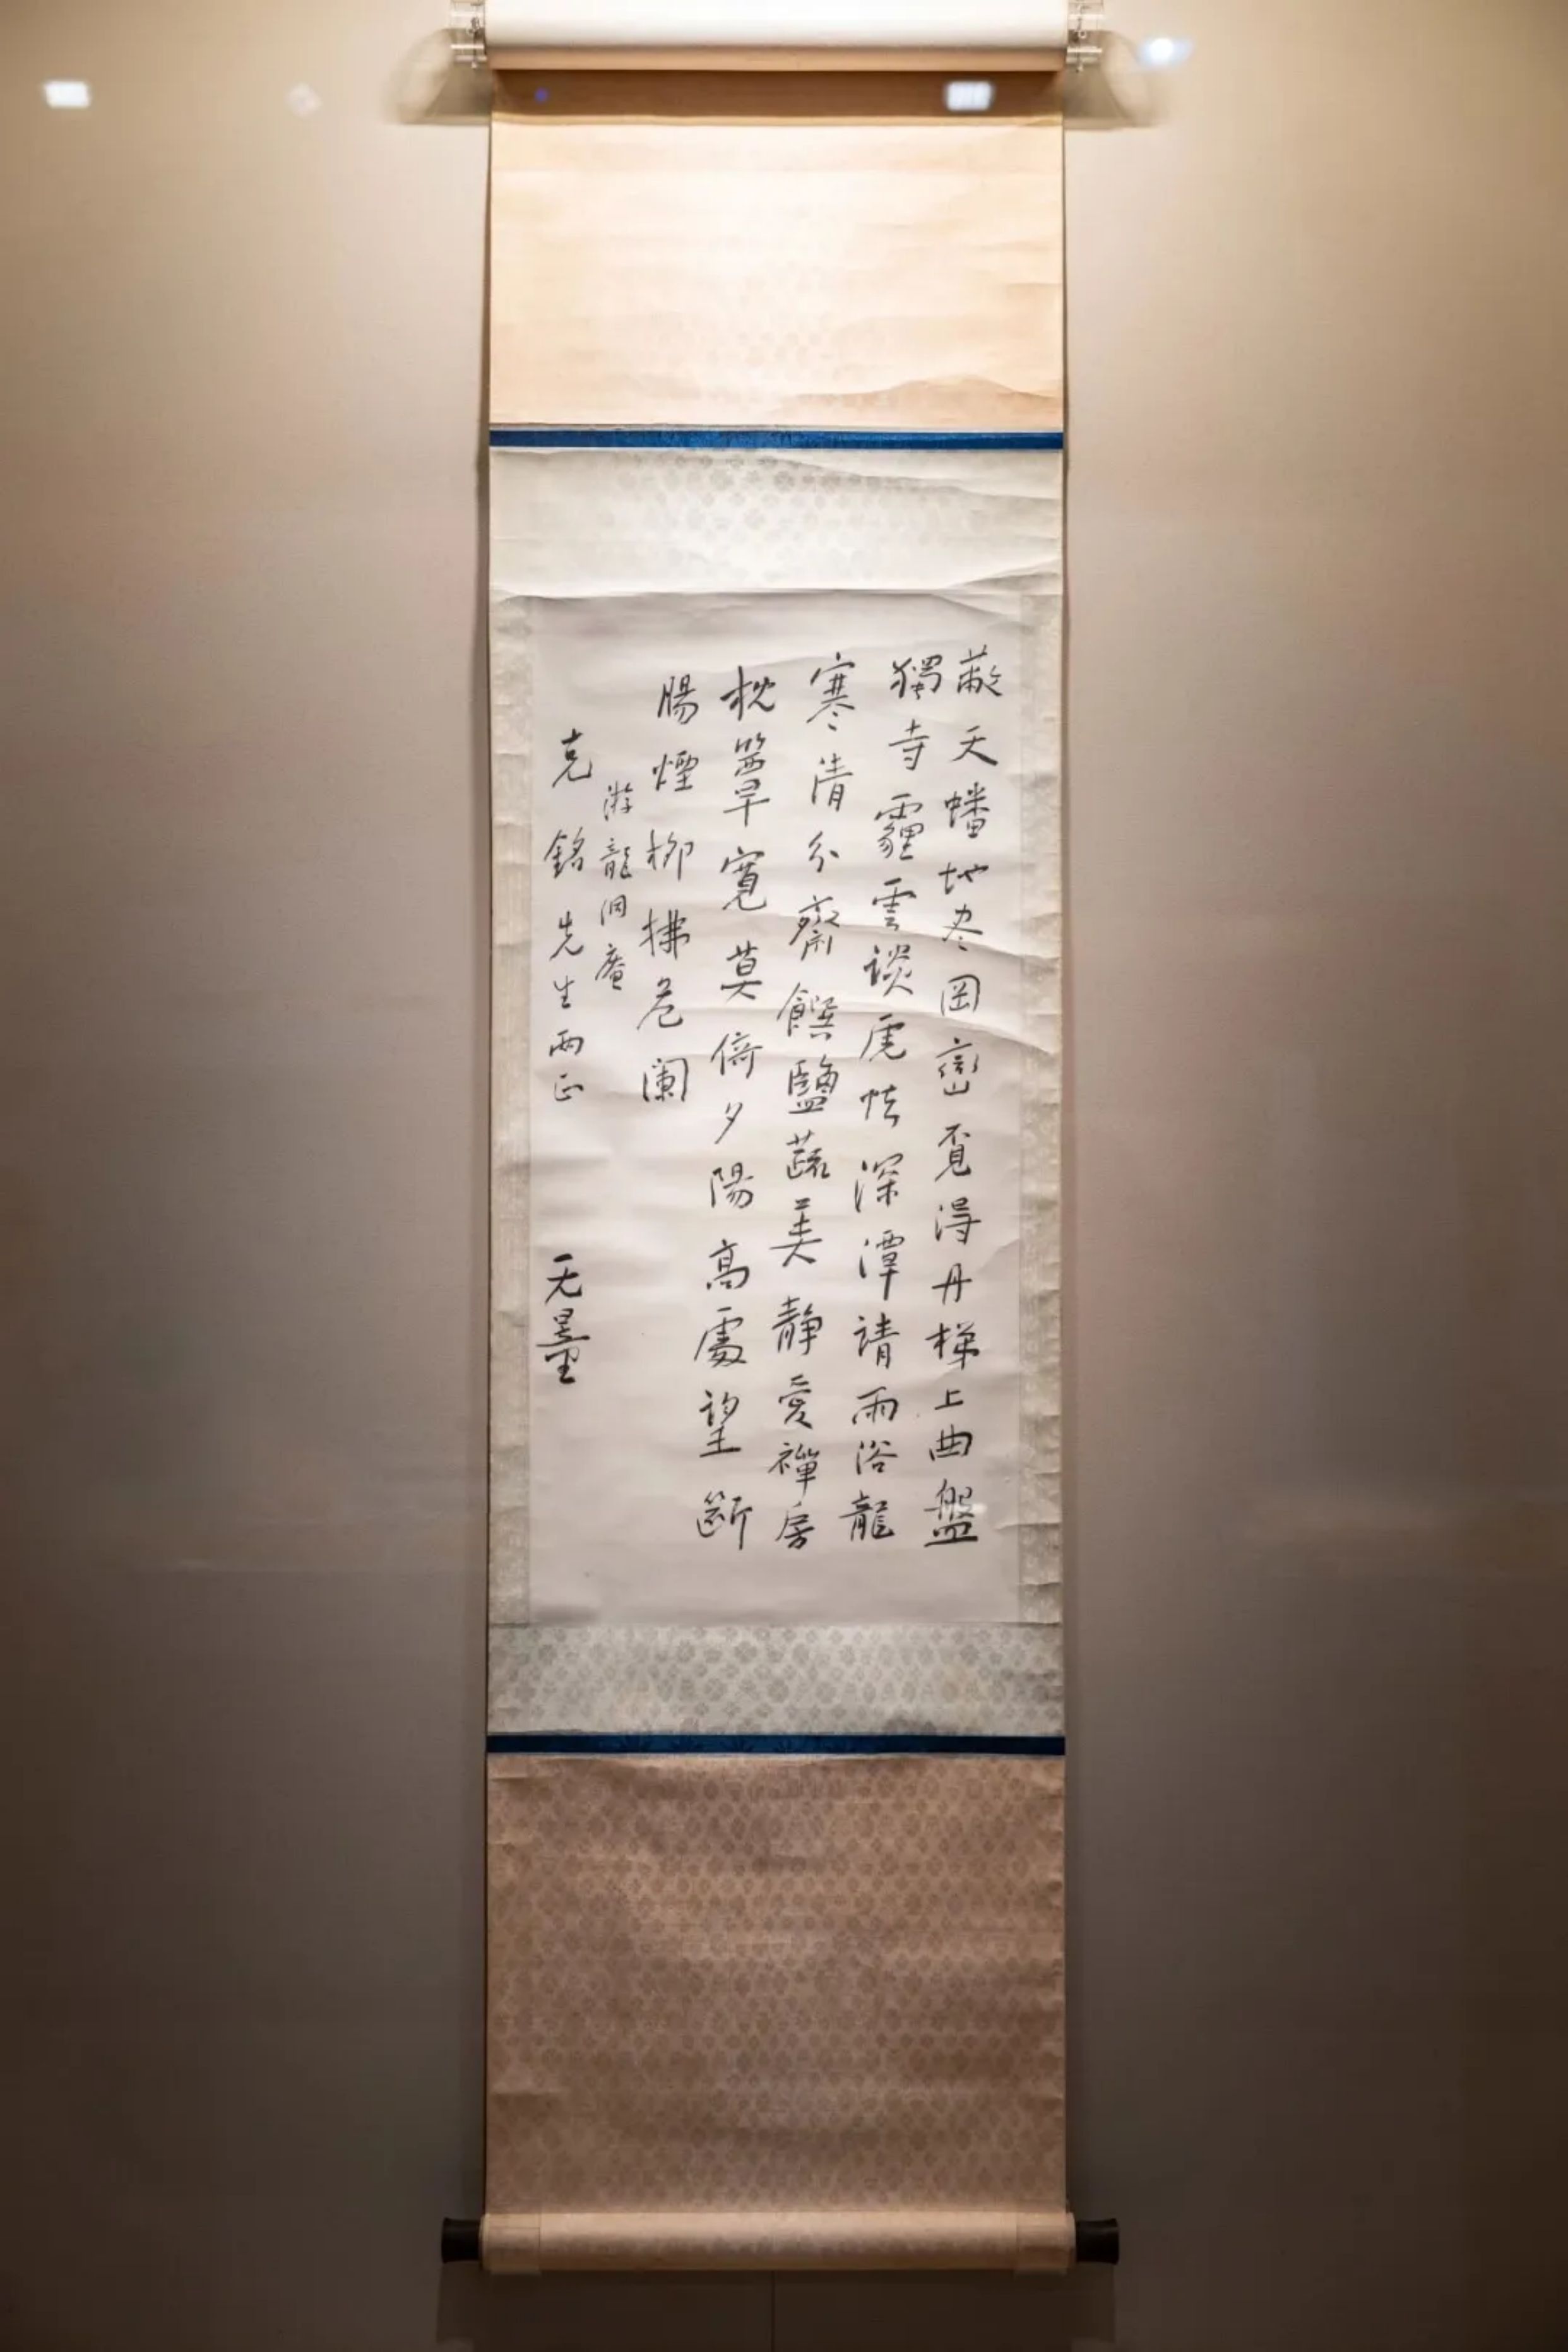 蔽天蟠地尽岡巒覔得丹梯上曲盤
獨寺霾雲談虎怯深潭請雨浴龍
寒清分齋饌鹽蔬美静愛禪房
枕簟寬莫倚夕陽高處望斷
腸煙柳拂危闌
游龍洞庵
克銘先生两正
无量